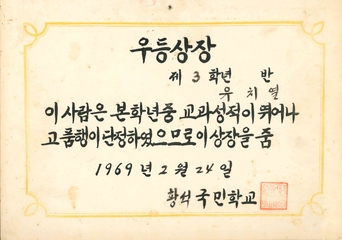 우등상장
제 3 학년 반
유 치 열
이 사람은 본학년중 교과성적이 뛰어나
고 품행이 단정하였으므로 이 상장을 줌
1969 년 2 월 24 일
황석 국민학교